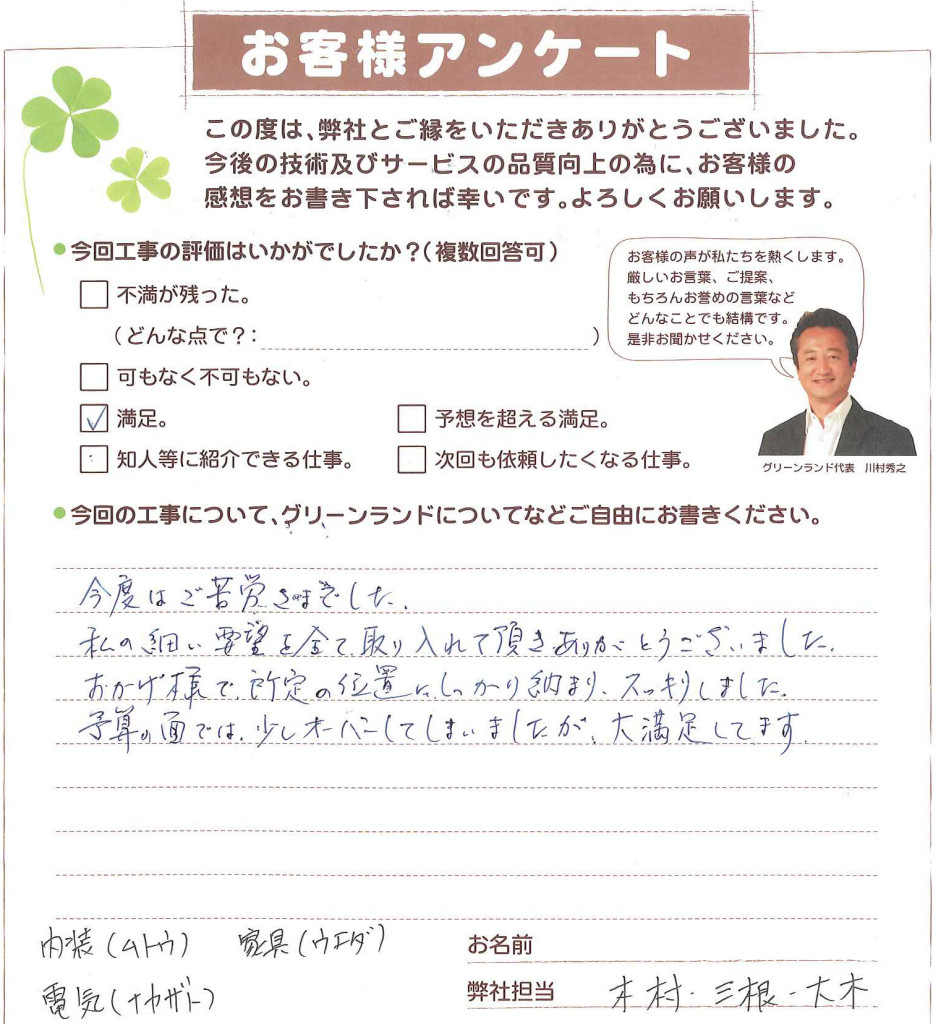 お客様アンケート
この度は、弊社とご縁をいただきありがとうございました。
今後の技術及びサービスの品質向上の為に、お客様の
感想をお書き下されば幸いです。よろしくお願いします。
今回工事の評価はいかがでしたか？（複数回答可）
不満が残った。
（どんな点で？：　）
可もなく不可もない。
満足。
予想を超える満足。
知人等に紹介できる仕事。
次回も依頼したくなる仕事。
お客様の声が私たちを熱くします。
厳しいお言葉、ご提案、
もちろんお誉めの言葉など
どんなことでも結構です。
是非お聞かせください。
グリーンランド代表　川村秀之
今回の工事について、グリーンランドについてなどご自由にお書きください。
今度はご苦労さまでした.
私の細い要望を全て取り入れて頂きありがとうございました.
おかげ様で、所定の位置にしっかり納まり、スッキリしました.
予算の面では、少しオーバーしてしまいましたが、大満足してます.
内装(ムトウ)　家具(ウエダ)
電気(ナカザト)
お名前
弊社担当　木村・三根・大木